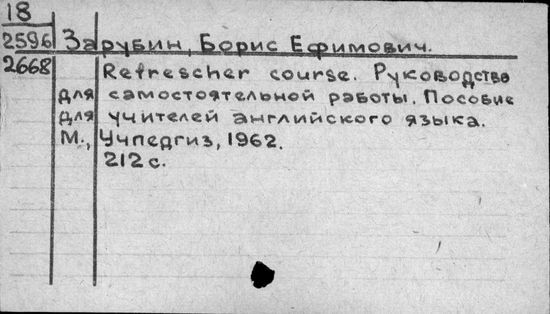 18
2596 Зарубин, Борис Ефимович.
2668 Refrescher course. Руководство
для самостоятельной работы. Пособие
для учителей английского языка.
М., Учпедгиз, 1962.
212 с.